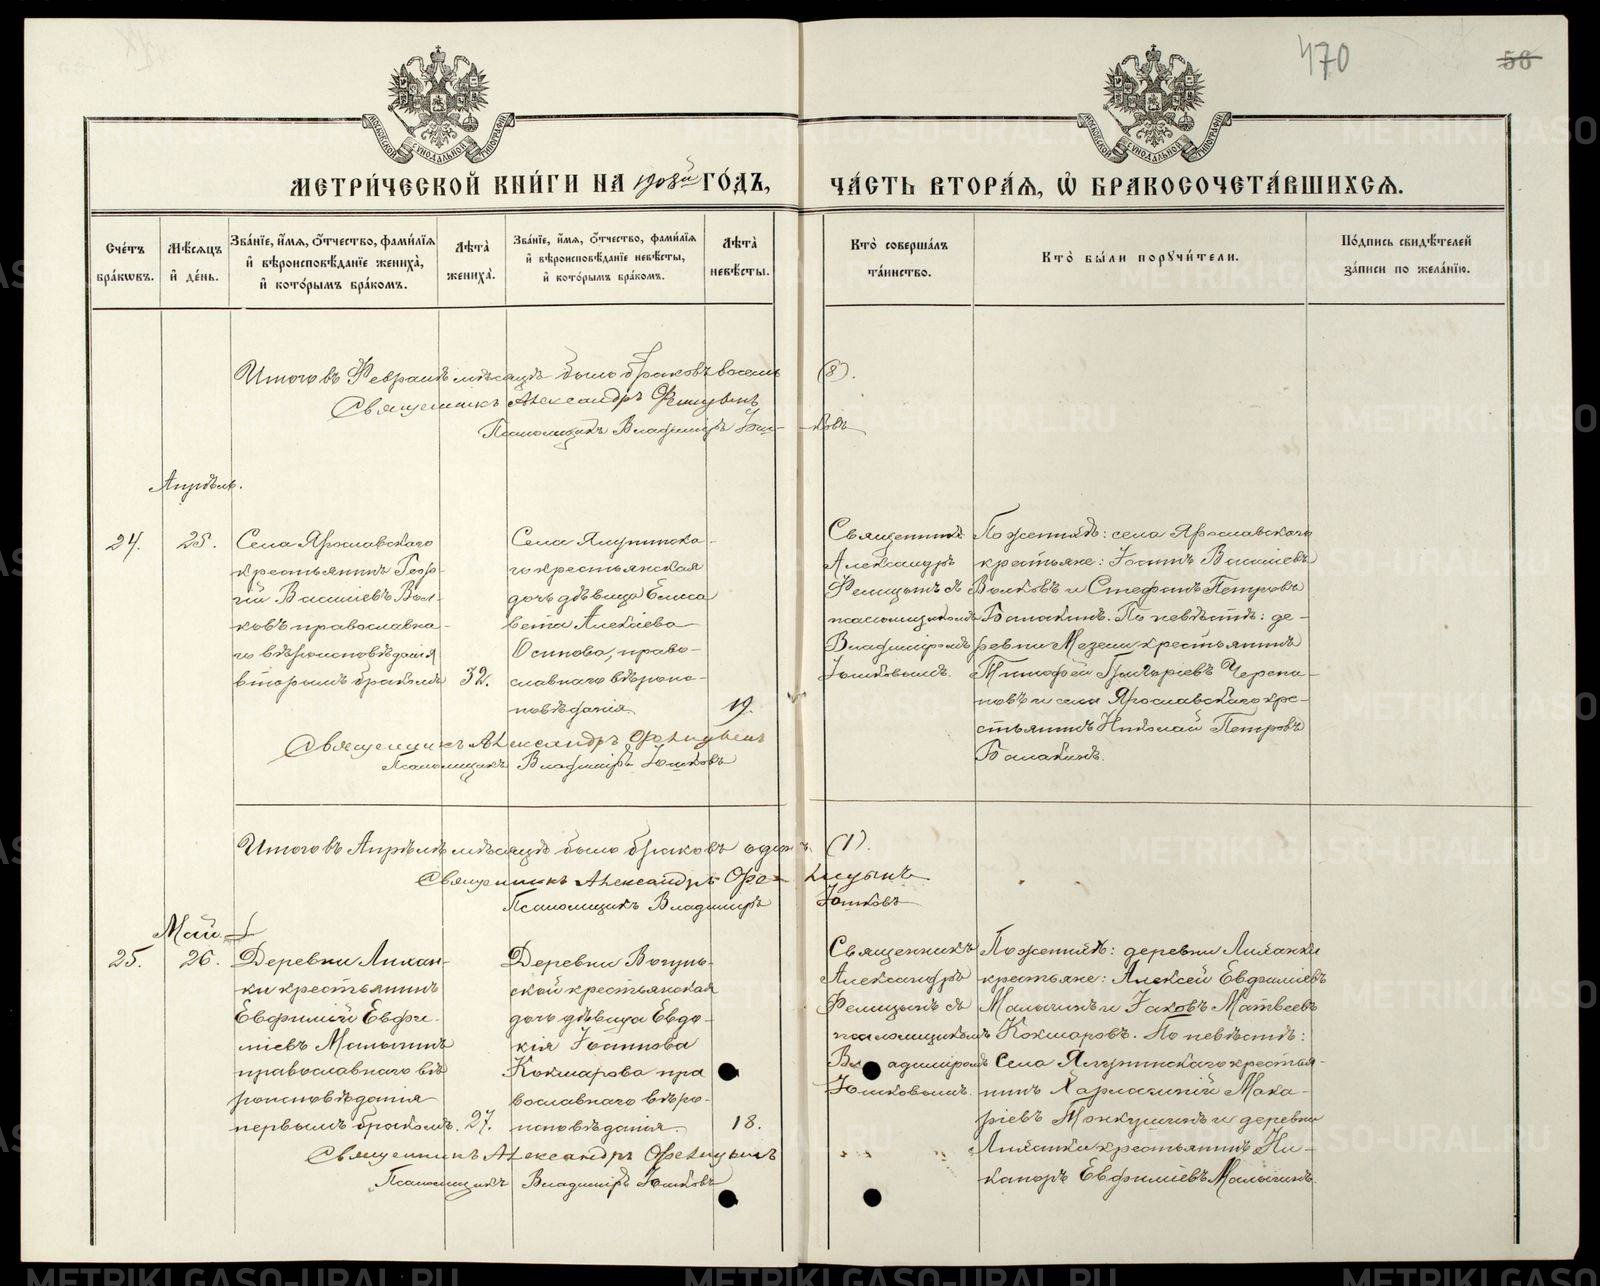 470
58
МОСКОВСКОЙ СѴНОДАЛЬНОЙ ТИПОГРАФІИ
МОСКОВСКОЙ СѴНОДАЛЬНОЙ ТИПОГРАФІИ
МЕТРИ́ЧЕСКОЙ КНИ́ГИ НА 1908й ГО́ДЪ,
ЧА́СТЬ ВТОРА́Я, Ѽ БРАКОСОЧЕТА́ВШИХСЯ.
Сче́тъ бра́ковъ.
Мѣ́сяцъ и҆ де́нь.
Зва́нїе, и҆́мя, ѻ҆́тчество, фами́лїя и҆ вѣроисповѣ́данїе жениха̀, и҆ кото́рымъ бра́комъ.
Лѣта̀ жениха̀.
Зва́нїе, и҆́мя, ѻ҆́тчество, фами́лїя и҆ вѣроисповѣ́данїе невѣ́сты, и҆ кото́рымъ бра́комъ.
Лѣта̀ невѣ́сты.
Кто̀ соверша́лъ та́инство.
Кто̀ бы́ли поручи́тели.
По́дпись свидѣ́телей за́писи по жела́нїю.
Итого въ Февралѣ мѣсяцѣ было браковъ восемь (8).
Священникъ Александръ Фелицынъ
Псаломщикъ Владиміръ Юшковъ
Апрѣль.
24.
25.
Села Ярославскаго
крестьянинъ Геор-
гій Васильевъ Вол-
ковъ православна-
го вѣроисповѣданія
вторымъ бракомъ
32.
Села Ялунинска-
го крестьянская
дочь дѣвица Елиса
вета Алексіева
Осипова, право-
славнаго вѣроис-
повѣданія.
19.
Священникъ
Александръ
Фелицынъ съ
псаломщикомъ
Владиміромъ
Юшковымъ.
По женихѣ: села Ярославскаго
крестьяне: Іоаннъ Васильевъ
Волковъ и Стефанъ Петровъ
Балакинъ. По невѣстѣ: де-
ревни Мезени крестьянинъ
Тимофей Григорьевъ Черепа-
новъ и села Ярославскаго кре-
стьянинъ Николай Петровъ
Балакинъ.
Священникъ Александръ Фелицынъ
Псаломщикъ Владиміръ Юшковъ
Итого въ Апрѣлѣ мѣсяцѣ было браковъ одинъ (1).
Священникъ Александръ Фелицынъ
Псаломщикъ Владиміръ Юшковъ
Май.
25.
26.
Деревни Лихан-
ки крестьянинъ
Евфимій Евфи-
міевъ Малыгинъ
православнаго вѣ
роисповѣданія
первымъ бракомъ.
27.
Деревни Вогуль-
ской крестьянская
дочь дѣвица Евдо-
кія Іоаннова
Кокшарова пра
вославнаго вѣро-
исповѣданія.
18.
Священникъ
Александръ
Фелицынъ съ
псаломщикомъ
Владиміромъ
Юшковымъ.
По женихѣ: деревни Лиханки
крестьяне: Алексѣй Евфиміевъ
Малыгинъ и Іаковъ Матвеевъ
Кокшаровъ. По невѣстѣ:
села Ялунинскаго крестья-
нинъ Харлампій Мака-
ріевъ и деревни
Лиханки крестьянинъ Ни-
каноръ Евфиміевъ Малыгинъ.
Священникъ Александръ Фелицынъ
Псаломщикъ Владиміръ Юшковъ
METRIKI.GASO-URAL.RU